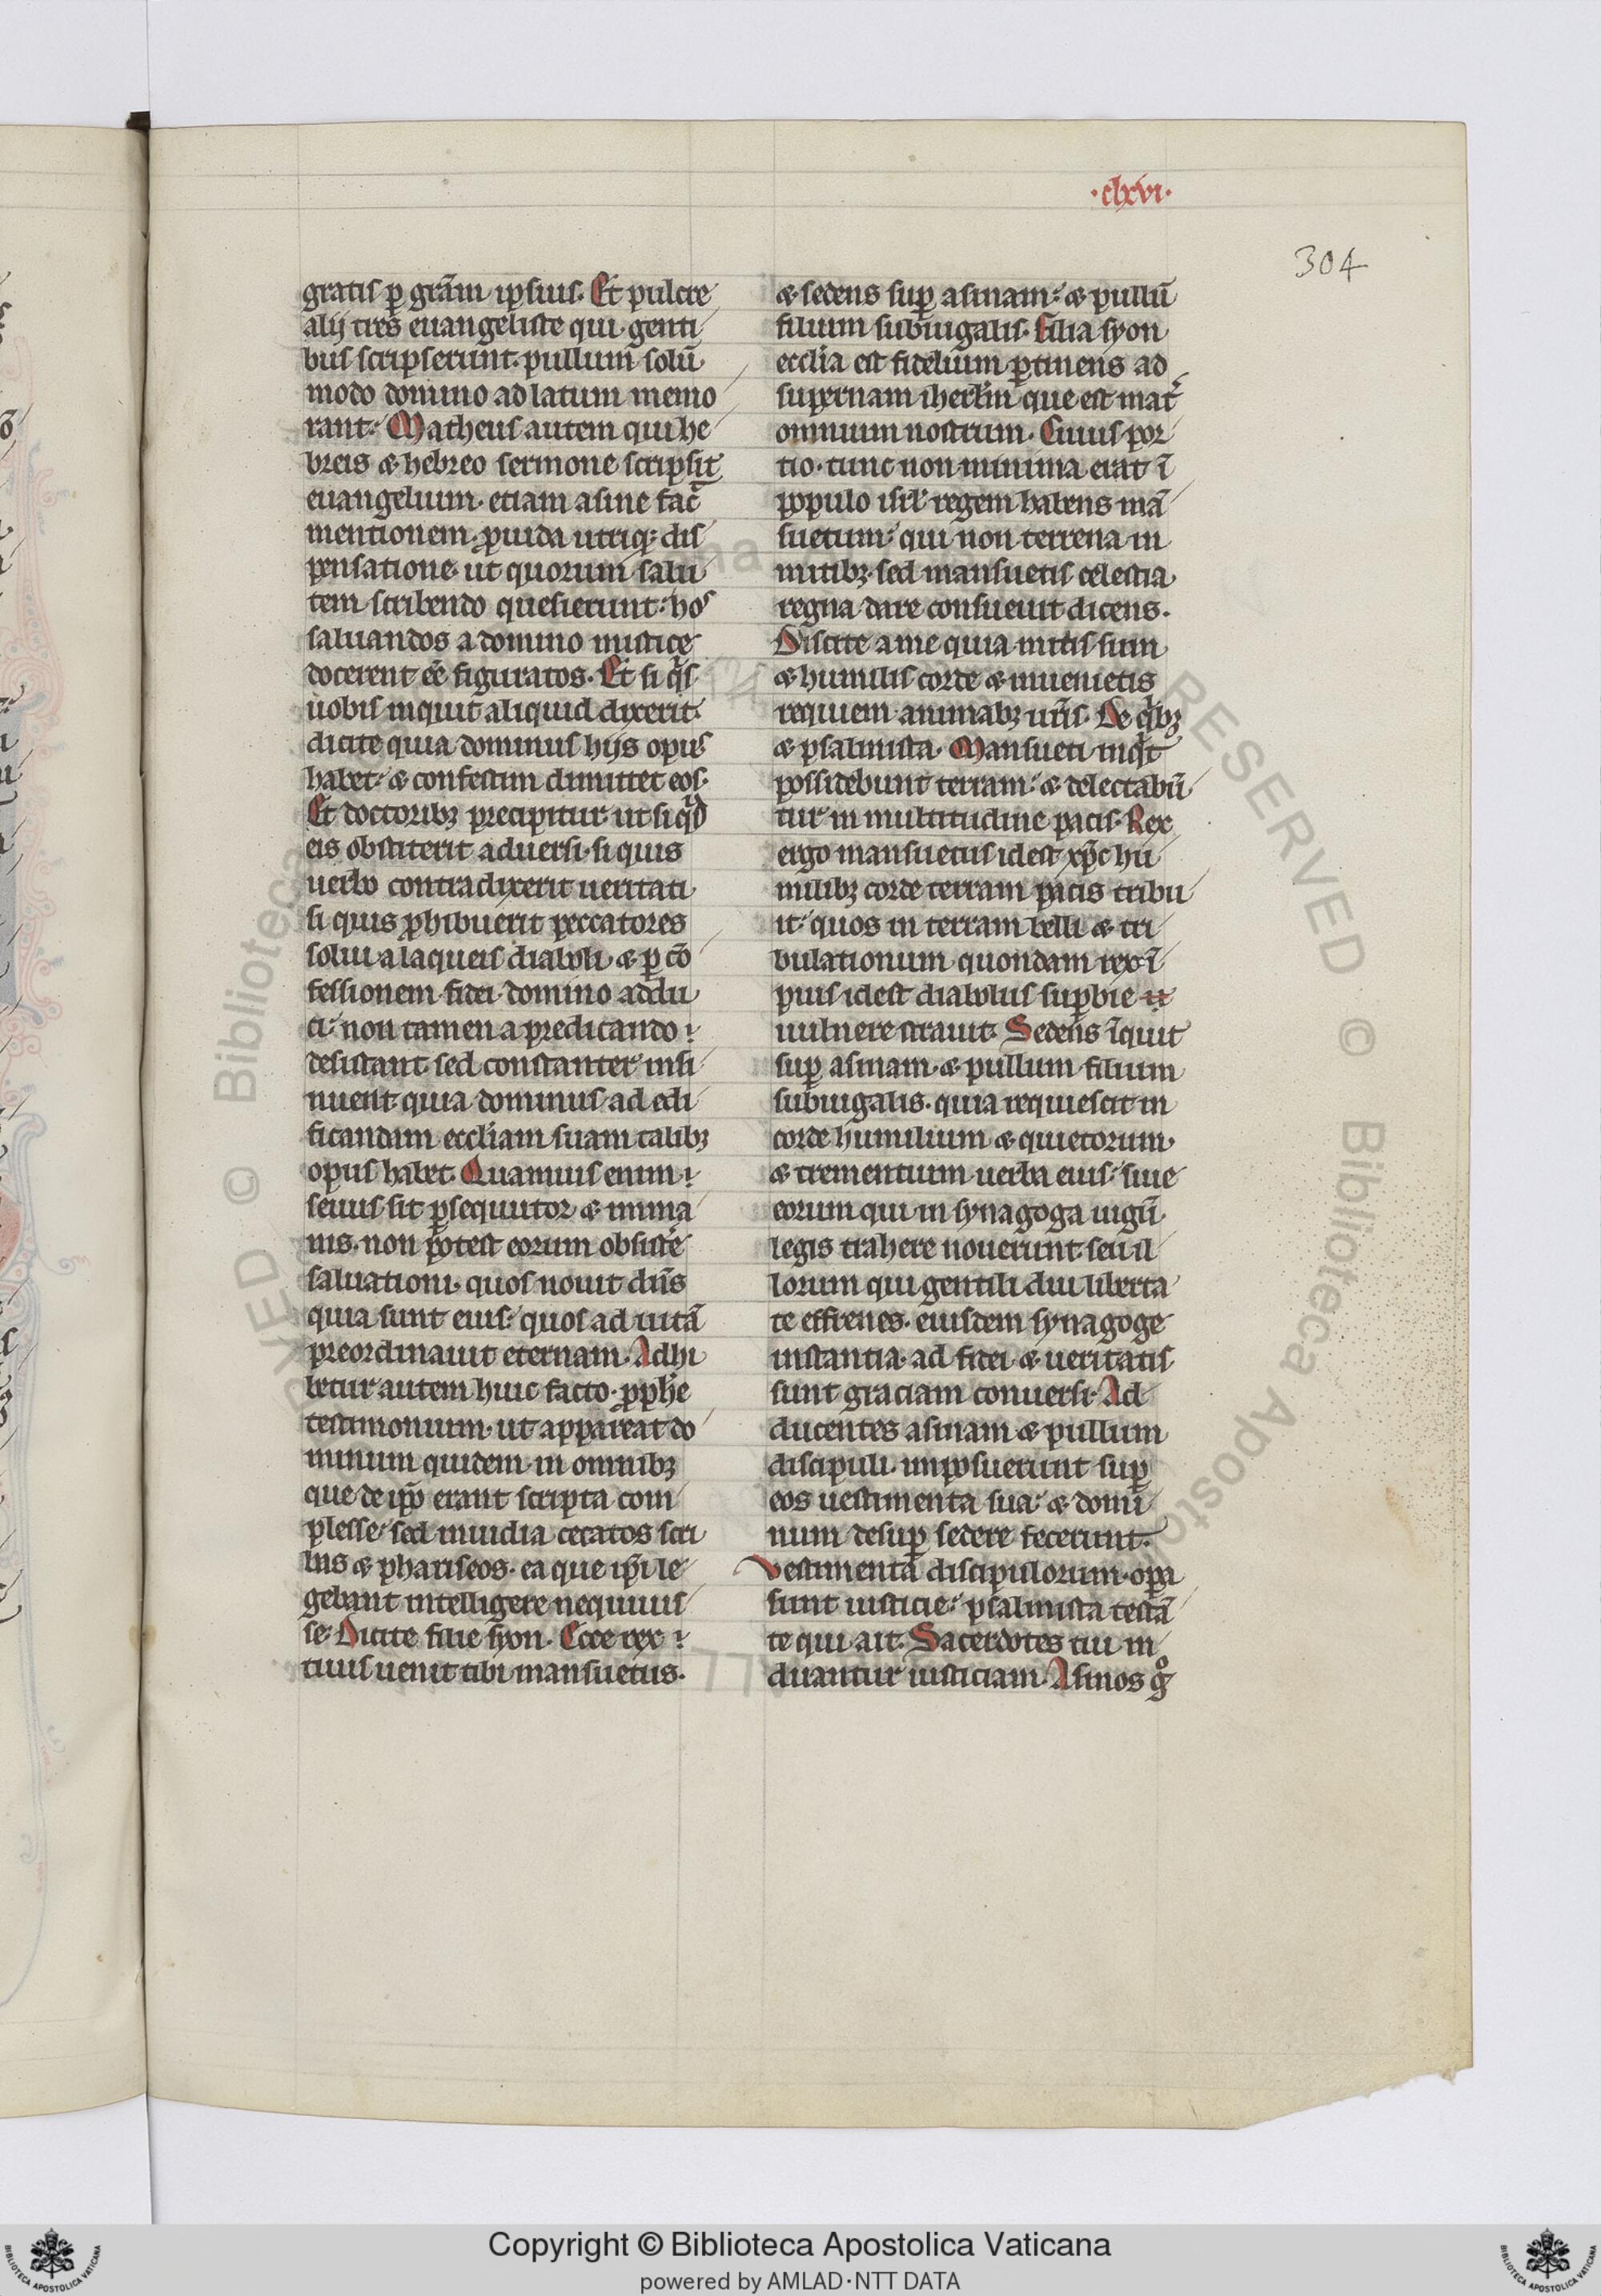 ·clxvi·
304
gratis ꝑ gr̃am ipsius. Et pulcre
alij tres euangeliste qui genti
bus scripserunt. pullum solũ
modo domino adlatum memo
rant. Matheus autem qui he
breis & hebreo sermone scripsit
euangelium. etiam asine fac̃
mentionem. ꝓuida utriqꝫ dis
pensatione. ut quorum salu
tem scribendo quesierunt. hos
saluandos a domino mistice
docerent eẽ figuratos. Et si qͥs
uobis inquit aliquid dixerit.
dicite quia dominus hijs opus
habet. & confestim dimittet eos.
Et doctoribꝫ precipitur ut si qͥd
eis obstiterit aduersi. si quis
uerbo contradixerit ueritati
si quis ꝓhibuerit peccatores
solui a laqueis diaboli & ꝑ cõ
fessionem fidei domino addu
ci. non tamen a predicando
desistant. sed constanter insi
nuent quia dominus ad edi
ficandam eccl̃iam suam talibꝫ
opus habet. Quamuis enim
seuus sit ꝑsequutor & inma
nis. non potest eorum obsistẽ
saluationi. quos nouit dñs
quia sunt eius. quos ad uitã
preordinauit eternam. Adhi
betur autem huic facto. ꝓph̃e
testimonium. ut appareat do
minum quidem in omnibꝫ
que de ip̃o erant scripta com
plesse. sed inuidia cecatos scri
bas & phariseos. ea que ip̃i le
gebant intelligere nequiuis
se. Dicite filie syon. Ecce rex
tuus uenit tibi mansuetus.
& sedens suꝑ asinam. & pullũ
filium subiugalis. Filia syon
eccl̃ia est fidelium ꝑtinens ad
supernam iherl̃m que est mat̃
omnium nostrum. Cuius por
tio. tunc non minima erat ĩ
populo isrl̃. regem habens mã
suetum. qui non terrena in
mitibꝫ. sed mansuetis celestia
regna dare consueuit dicens.
Discite a me quia mitis sum
& humilis corde & inuenietis
requiem animabꝫ ur̃is. De qͥbꝫ
& psalmista. Mansueti inqͥt
possidebunt terram. & delectabũ
tur in multitudine pacis. Rex
ergo mansuetus idest xp̃c hu
milibꝫ corde terram pacis tribu
it. quos in terram belli & tri
bulationum quondam rex ĩ
pius idest diabolus suꝑbie
uulnere strauit. Sedens ĩquit
suꝑ asinam. & pullum filium
subiugalis. quia requiescit in
corde humilium & quietorum
& trementium uerba eius. siue
eorum qui in synagoga iugũ
legis trahere nouerunt. seu il
lorum qui gentili diu liberta
te effrenes. eiusdem synagoge
instantia. ad fidei & ueritatis
sunt graciam conuersi. Ad
ducentes asinam & pullum
discipuli. imposuerunt suꝑ
eos uestimenta sua. & domi
num desuꝑ sedere fecerunt.
Vestimenta discipulorum. oꝑa
sunt iusticie. psalmista testã
te qui ait. Sacerdotes tui in
duantur iusticiam. Asinos gͦ
Copyright © Biblioteca Apostolica Vaticana
powered by AMLAD·NTT DATA